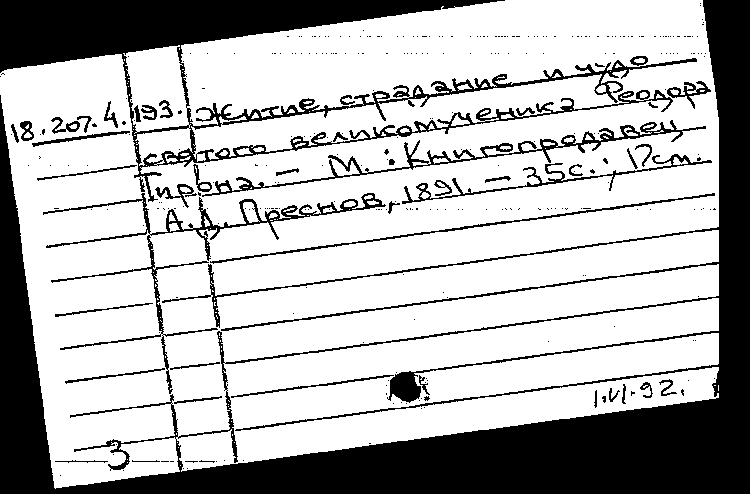 18.207.4.193. Житие, страдание и чудо
святого великомученика Феодора
Тирона. — М. : Книгопродавец
А.Д. Преснов, 1891. — 35с.; 17см.
1.VI.92.
3